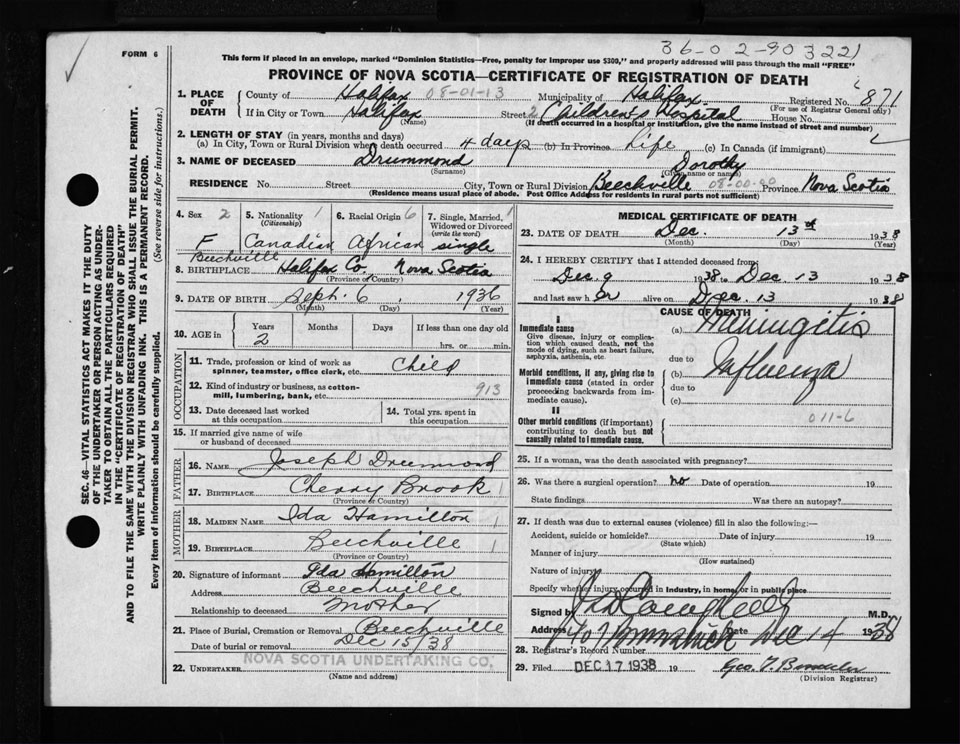 36-02-903221
FORM 6
This form if placed in an envelope, marked "Dominion Statistics—Free, penalty for improper use $300," and properly addressed will pass through the mail "FREE"
PROVINCE OF NOVA SCOTIA—CERTIFICATE OF REGISTRATION OF DEATH
1. PLACE OF DEATH
County of Halifax 08-01-13 Municipality of Halifax Registered No. 871
(For use of Registrar General only)
If in City or Town Halifax Street Children's Hospital House No.
(Name) (If death occurred in a hospital or institution, give the name instead of street and number)
2. LENGTH OF STAY (in years, months and days)
(a) In City, Town or Rural Division where death occurred 4 days (b) In Province Life (c) In Canada (if immigrant)
3. NAME OF DECEASED Drummond Dorothy
(Surname) (Given name or names)
RESIDENCE No. Street City, Town or Rural Division Beechville 08-00-90 Province Nova Scotia
(Residence means usual place of abode. Post Office Address for residents in rural parts not sufficient)
4. Sex 2 F
5. Nationality 1 (Citizenship) Canadian
6. Racial Origin 6 African
7. Single, Married, Widowed or Divorced (write the word) 1 single
Beechville
8. BIRTHPLACE Halifax Co. Nova Scotia
(Province or Country)
9. DATE OF BIRTH Sept. 6, 1936
(Month) (Day) (Year)
10. AGE in Years 2 Months Days If less than one day old
hrs. or min.
OCCUPATION
11. Trade, profession or kind of work as spinner, teamster, office clerk, etc. Child
12. Kind of industry or business, as cotton-mill, lumbering, bank, etc. 913
13. Date deceased last worked at this occupation
14. Total yrs. spent in this occupation
15. If married give name of wife or husband of deceased
FATHER
16. NAME Joseph Drummond
17. BIRTHPLACE Cherry Brook 1
(Province or Country)
MOTHER
18. MAIDEN NAME Ida Hamilton 1
19. BIRTHPLACE Beechville 1
(Province or Country)
20. Signature of informant Ida Hamilton
Address Beechville
Relationship to deceased Mother
21. Place of Burial, Cremation or Removal Beechville
Date of burial or removal Dec 15/38
22. UNDERTAKER NOVA SCOTIA UNDERTAKING CO.
(Name and address)
MEDICAL CERTIFICATE OF DEATH
23. DATE OF DEATH Dec. 13th 1938
(Month) (Day) (Year)
24. I HEREBY CERTIFY that I attended deceased from
Dec 9 1938 to Dec 13 1938
and last saw her alive on Dec. 13 1938
CAUSE OF DEATH
I
Immediate cause
Give disease, injury or complication which caused death, not the mode of dying, such as heart failure, asphyxia, asthenia, etc.
(a) Meningitis
due to
Morbid conditions, if any, giving rise to immediate cause (stated in order proceeding backwards from immediate cause).
(b) Influenza
due to
(c)
II
Other morbid conditions (if important) contributing to death but not causally related to immediate cause.
011-6
25. If a woman, was the death associated with pregnancy?
26. Was there a surgical operation? no Date of operation 19
State findings Was there an autopsy?
27. If death was due to external causes (violence) fill in also the following:—
Accident, suicide or homicide? Date of injury 19
(State which)
Manner of injury
(How sustained)
Nature of injury
Specify whether injury occurred in industry, in home, or in public place
Signed by M.D.
Address 407 Brunswick Date Dec 14 1938
28. Registrar's Record Number
29. Filed DEC 17 1938 19
(Division Registrar)
SEC. 46—VITAL STATISTICS ACT MAKES IT THE DUTY
OF THE UNDERTAKER OR PERSON ACTING AS UNDER-
TAKER TO OBTAIN ALL THE PARTICULARS REQUIRED
IN THE "CERTIFICATE OF REGISTRATION OF DEATH"
AND TO FILE THE SAME WITH THE DIVISION REGISTRAR WHO SHALL ISSUE THE BURIAL PERMIT.
WRITE PLAINLY WITH UNFADING INK. THIS IS A PERMANENT RECORD.
Every item of information should be carefully supplied. (See reverse side for instructions.)